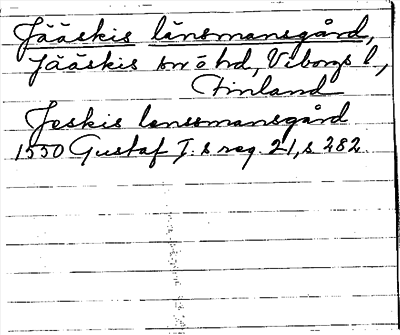 Jääskis länsmansgård,
Jääskis sn o hd, Viborgs l,
Finland
Jeskis lensmansgård
1550 Gustaf I:s reg. 21, s 282.